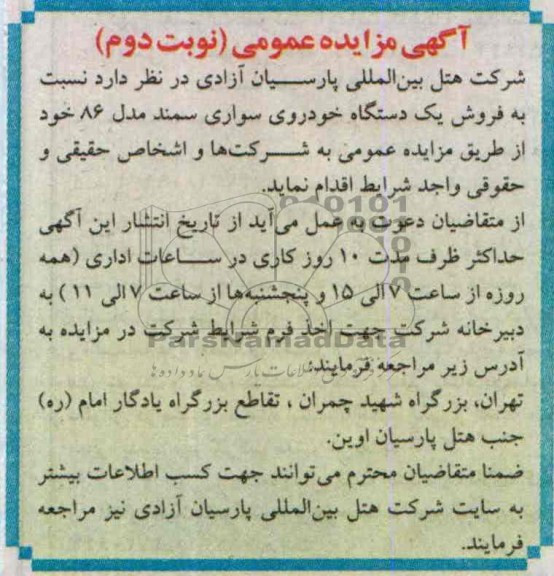 آگهی مزایده عمومی (نوبت دوم)
شرکت هتل بین‌المللی پارسیان آزادی در نظر دارد نسبت
به فروش یک دستگاه خودروی سواری سمند مدل ۸۶ خود
از طریق مزایده عمومی به شرکت‌ها و اشخاص حقیقی و
حقوقی واجد شرایط اقدام نماید.
از متقاضیان دعوت به عمل می‌آید از تاریخ انتشار این آگهی
حداکثر ظرف مدت ۱۰ روز کاری در ساعات اداری (همه
روزه از ساعت ۷ الی ۱۵ و پنجشنبه‌ها از ساعت ۷ الی ۱۱ ) به
دبیرخانه شرکت جهت اخذ فرم شرایط شرکت در مزایده به
ParsNamadData
آدرس زیر مراجعه فرمایند:
تهران، بزرگراه شهید چمران ، تقاطع بزرگراه یادگار امام (ره)
جنب هتل پارسیان اوین.
ضمنا متقاضیان محترم می‌توانند جهت کسب اطلاعات بیشتر
به سایت شرکت هتل بین‌المللی پارسیان آزادی نیز مراجعه
فرمایند.